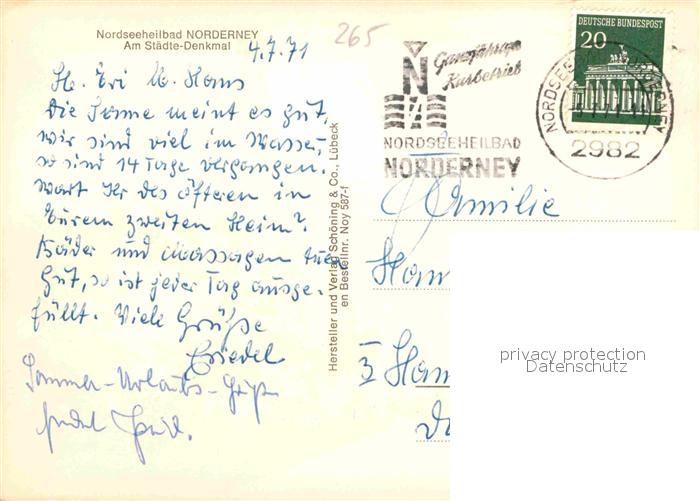 Nordseeheilbad NORDERNEY
Am Städte-Denkmal
4.7.71
265
Die Sonne meint es gut,
wir sind viel im Wasser,
so sind 14 Tage vergangen.
Wart Ihr des öfteren in
Eurem zweiten Heim?
Bäder und Massagen tuen
gut, so ist jeder Tag ausge-
füllt. Viele Grüße
Friedel
Sommer-Urlaubs-Grüße
sendet
Hersteller und Verlag Schöning & Co., Lübeck
en Bestellnr. Noy 587-f
Ganzjährige
Kurbetrieb
N
NORDSEEHEILBAD
NORDERNEY
DEUTSCHE BUNDESPOST
20
2982
Familie
3 Han
privacy protection
Datenschutz